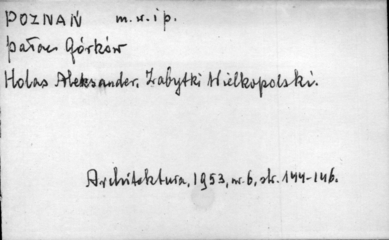 POZNAŃ m. w. i p.
pałac Górków
Holas Aleksander, Zabytki Wielkopolski.
Architektura, 1953, nr. 6, str. 144-146.